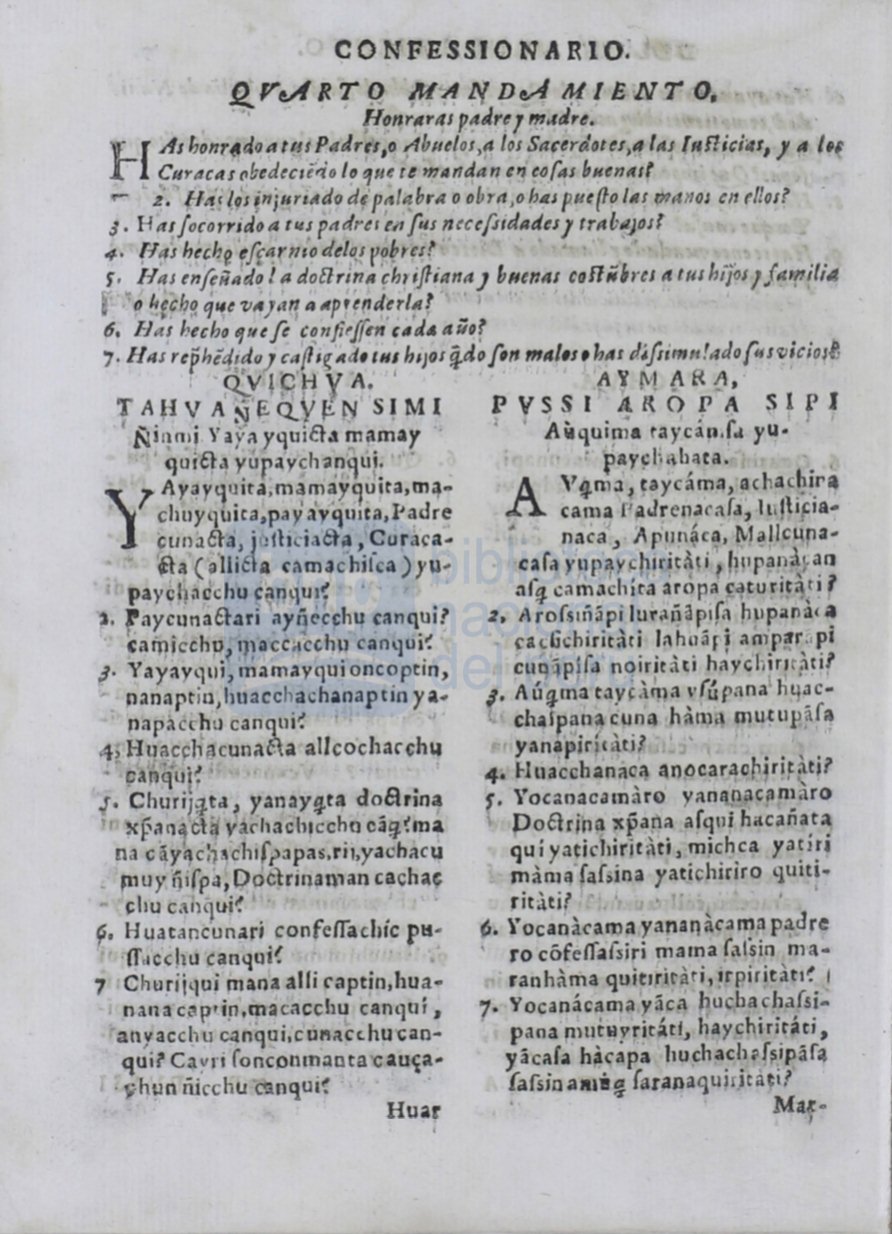 CONFESSIONARIO.
QVARTO MANDAMIENTO,
Honraras padre y madre.
HAs honrado a tus Padres, o Abuelos, a los Sacerdotes, a las Iusticias, y a los
Curacas obedeciẽdo lo que te mandan en cosas buenas?
2. Has los injuriado de palabra o obra, o has puesto las manos en ellos?
3. Has socorrido a tus padres en sus necessidades y trabajos?
4. Has hecho escarnio delos pobres?
5. Has enseñado la doctrina christiana y buenas costũbres a tus hijos y familia
o hecho que vayan a aprenderla?
6. Has hecho que se confiessen cada año?
7. Has rep̃hẽdido y castigado tus hijos q̃do son malos o has dissimulado sus vicios?
QVICHVA.
TAHVAÑEQVEN SIMI
Ñinmi Yaya yquicta mamay
quicta yupaychanqui.
YAyayquita, mamayquita, ma-
chuyquita, payayquita, Padre
cunacta, justiciacta, Curaca-
cta (allicta camachisca) yu-
paychacchu canqui?
2. Paycunactari ayñecchu canqui?
camicchu, maccacchu canqui?
3. Yayayqui, mamayqui oncoptin,
nanaptin, huacchachanaptin ya-
napacchu canqui?
4, Huacchacunacta allcochacchu
canqui?
5. Churijq̃ta, yanayq̃ta doctrina
xp̃anacta yachachicchu cãq̃? ma
na cãyachachispapas.rij, yachacu
muy ñispa, Doctrinaman cachac
chu canqui?
6. Huatancunari confessachíc pu-
ssacchu canqui?
7 Churijqui mana alli captin, hua-
nana captin, macacchu canquí,
anyacchu canqui, cunacchu can-
qui? Cayri sonconmanta cauça-
chun ñicchu canqui?
Huar
AYMARA,
PVSSI AROPA SIPI
Aùquima taycansa yu-
paychahata.
AVq̃ma, taycáma, achachira
cama Padrenacasa, Iusticia-
naca, Apunáca, Mallcuna-
casa yupaychiritàti, hupanàcan
asq̃ camachita aropa caturitàti?
2, Arossiñãpi lurañãpisa hupanàca
cacchichiritàti lahuãpi
cunãpisa noiritàti haychiritàti?
3. Aúq̃ma taycàma vsúpana huac-
chaspana cuna hàma mutupãsa
yanapiritàti?
4. Huacchanaca anocarachiritàti?
5. Yocanacamàro yananacamàro
Doctrina xp̃ana asqui hacañata
qui yatichiritàti, michca yatiri
màma sassina yatichiriro quiti-
ritàti?
6. Yocanàcama yananàcama padre
ro cõfessassiri mama sassin ma-
ranhàma quitiritàti, irpiritàti?
7. Yocanácama yãca huchachassi-
pana mutuyritáti, haychiritáti,
yãcasa hàcapa huchachassipãsa
sassina saranaquiritàti?
Mar-